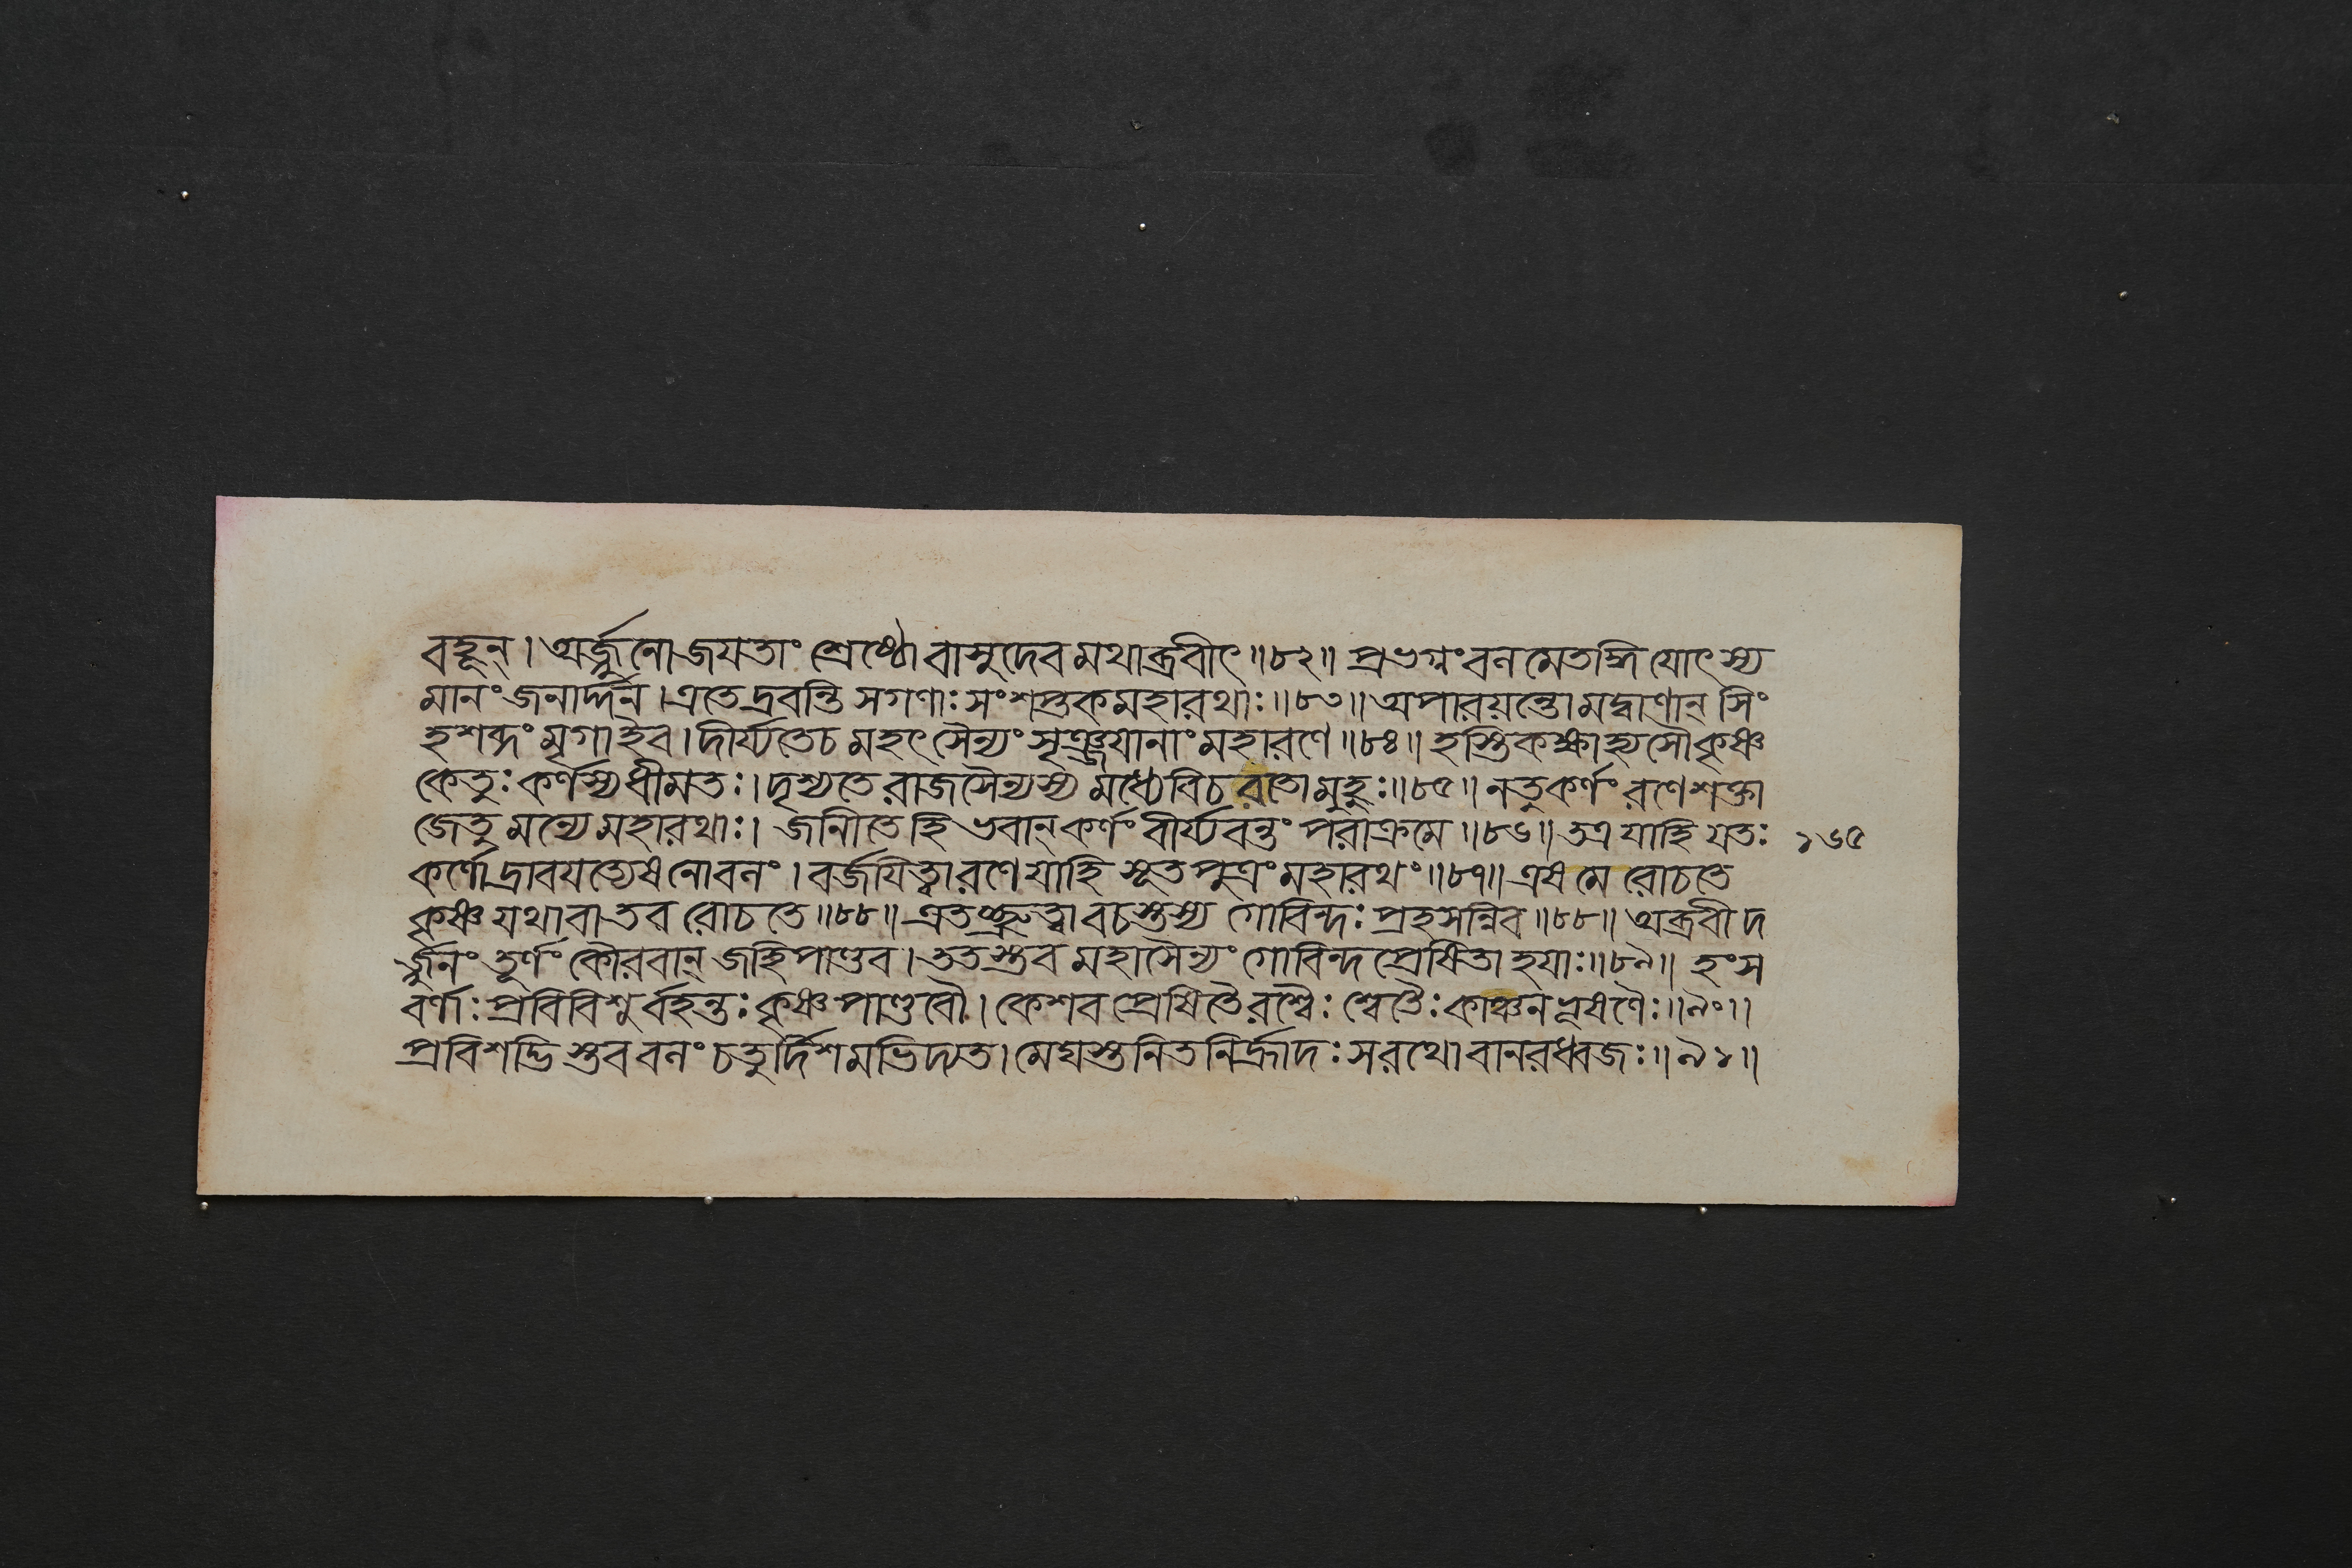 বহূন্। অর্জ্জুনো জয়তাং শ্রেষ্ঠো বাসুদেব মথাব্রবীৎ॥৮২॥ প্রভগ্নং বন মেতদ্ধি যোৎস্য
মানং জনার্দ্দন। এতে দ্রবন্তি সগণাঃ সংশপ্তকমহারথাঃ॥৮৩॥ অপারয়ন্তো মদ্বাণান্ সিং
হশব্দং মৃগাইব। দীর্য্যতেচ মহৎ সৈন্যং সৃঞ্জয়ানাং মহারণে॥৮৪॥ হস্তিকক্ষাহ্যসৌ কৃষ্ণ
কেতুঃ কর্ণস্য ধীমতঃ। দৃশ্যতে রাজসৈন্যস্য মধ্যে বিচরতো মুহুঃ॥৮৫॥ নতু কর্ণং রণে শক্তা
জেতু মন্যে মহারথাঃ। জানীতে হি ভবান্ কর্ণং বীর্য্যবন্তং পরাক্রমে॥৮৬॥ তত্র যাহি যতঃ ১৬৫
কর্ণো দ্রাবয়ত্যেষ নো বনং। বর্জয়িত্বা রণে যাহি সূত পুত্রং মহারথং॥৮৭॥ এষ মে রোচতে
কৃষ্ণ যথা বা তব রোচতে॥৮৮॥ এতচ্ছ্রুত্বা বচস্তস্য গোবিন্দঃ প্রহসন্নিব॥৮৮॥ অব্রবীদ
র্জ্জুনং তূর্ণং কৌরবান্ জহি পাণ্ডব। ততস্তব মহাসৈন্যং গোবিন্দ প্রেষিতা হয়াঃ॥৮৯॥ হংস
বর্ণাঃ প্রবিবিশু র্বহন্তঃ কৃষ্ণ পাণ্ডবৌ। কেশব প্রেষিতৈরশ্বৈঃ শ্বেতৈঃ কাঞ্চন ভূষণৈঃ॥৯০॥
প্রবিশদ্ভি স্তব বনং চতুর্দিশমভিদ্যত। মেঘস্তনিতনির্হ্রাদঃ সরথো বানরধ্বজঃ॥৯১॥